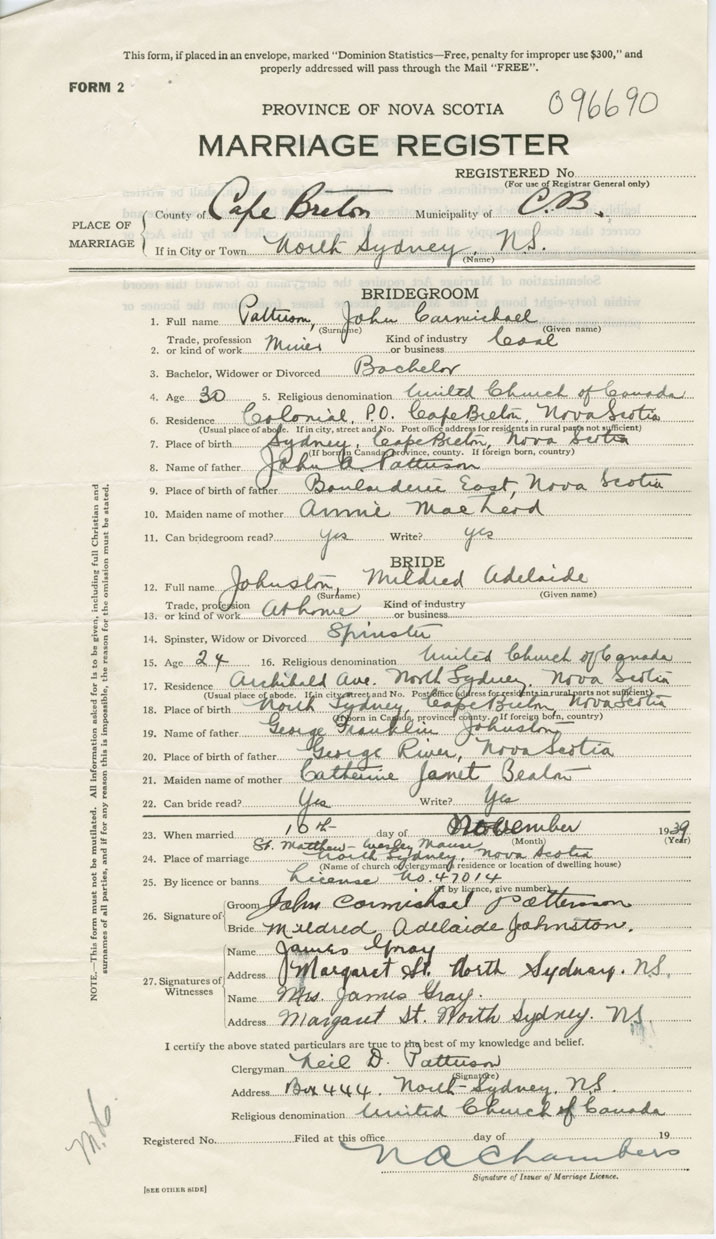 This form, if placed in an envelope, marked "Dominion Statistics—Free, penalty for improper use $300," and
properly addressed will pass through the Mail "FREE".
FORM 2
PROVINCE OF NOVA SCOTIA
096690
MARRIAGE REGISTER
REGISTERED No
(For use of Registrar General only)
PLACE OF MARRIAGE
County of Cape Breton Municipality of C.B.
If in City or Town North Sydney, N.S.
(Name)
BRIDEGROOM
1. Full name Patterson, John Carmichael
(Surname) (Given name)
2. Trade, profession or kind of work Miner Kind of industry or business Coal
3. Bachelor, Widower or Divorced Bachelor
4. Age 30 5. Religious denomination United Church of Canada
6. Residence Colonial, P.O. Cape Breton, Nova Scotia
(Usual place of abode. If in city, street and No. Post office address for residents in rural parts not sufficient)
7. Place of birth Sydney, Cape Breton, Nova Scotia
(If born in Canada, province, county. If foreign born, country)
8. Name of father John A. Patterson
9. Place of birth of father Boularderie East, Nova Scotia
10. Maiden name of mother Annie MacLeod
11. Can bridegroom read? yes Write? yes
BRIDE
12. Full name Johnston, Mildred Adelaide
(Surname) (Given name)
13. Trade, profession or kind of work At home Kind of industry or business
14. Spinster, Widow or Divorced Spinster
15. Age 24 16. Religious denomination United Church of Canada
17. Residence Archibald Ave. North Sydney, Nova Scotia
(Usual place of abode. If in city, street and No. Post office address for residents in rural parts not sufficient)
18. Place of birth North Sydney, Cape Breton, Nova Scotia
(If born in Canada, province, county. If foreign born, country)
19. Name of father George Franklin Johnston
20. Place of birth of father George River, Nova Scotia
21. Maiden name of mother Catherine Janet Beaton
22. Can bride read? Yes Write? Yes
23. When married 10th day of November 1939
(Month) (Year)
St. Matthew-Wesley Manse,
24. Place of marriage North Sydney, Nova Scotia
(Name of church or clergyman's residence or location of dwelling house)
25. By licence or banns License No. 47014
(If by licence, give number)
26. Signature of
Groom John Carmichael Patterson
Bride Mildred Adelaide Johnston.
27. Signatures of Witnesses
Name James Gray
Address Margaret St. North Sydney. N.S.
Name Mrs. James Gray.
Address Margaret St. North Sydney. N.S.
I certify the above stated particulars are true to the best of my knowledge and belief.
Clergyman Neil D. Patterson
(Signature)
Address Box 444. North-Sydney. N.S.
Religious denomination United Church of Canada
Registered No. Filed at this office day of 19
N A Chambers
Signature of Issuer of Marriage Licence.
[SEE OTHER SIDE]
NOTE.—This form must not be mutilated. All information asked for is to be given, including full Christian and
surnames of all parties, and if for any reason this is impossible, the reason for the omission must be stated.